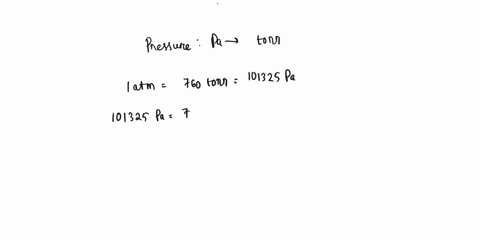 Pressure : Pa → torr
1 atm = 760 torr = 101325 Pa
101325 Pa = 7